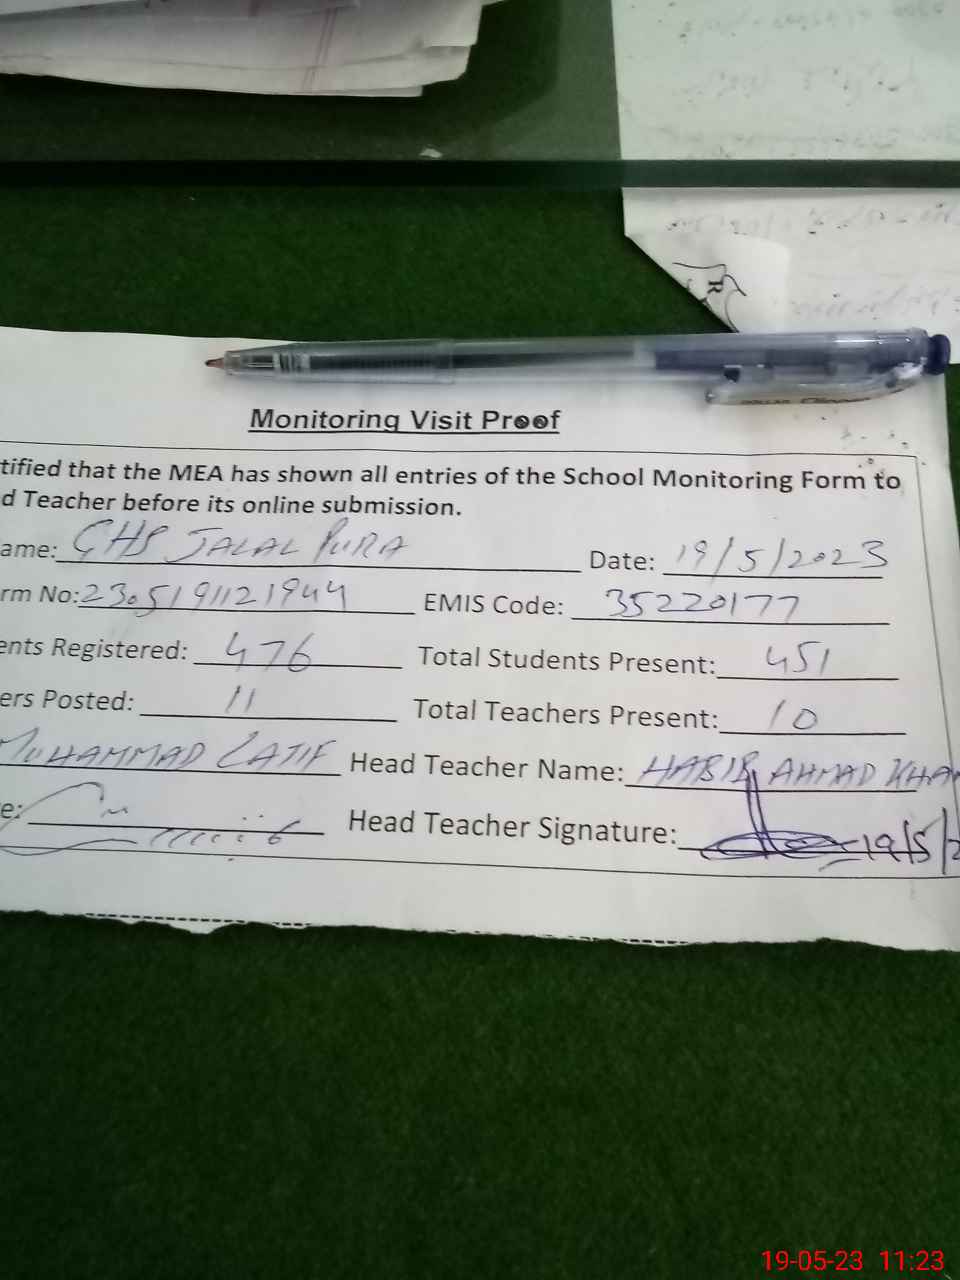 Monitoring Visit Proof
tified that the MEA has shown all entries of the School Monitoring Form to
d Teacher before its online submission.
ame: GHS JALAL PURA Date: 19/5/2023
rm No: 2305191121944 EMIS Code: 35220177
ents Registered: 476 Total Students Present: 451
ers Posted: 11 Total Teachers Present: 10
MUHAMMAD LATIF Head Teacher Name: HABIB AHMAD KHA
e: Head Teacher Signature: 19/5/2
19-05-23 11:23